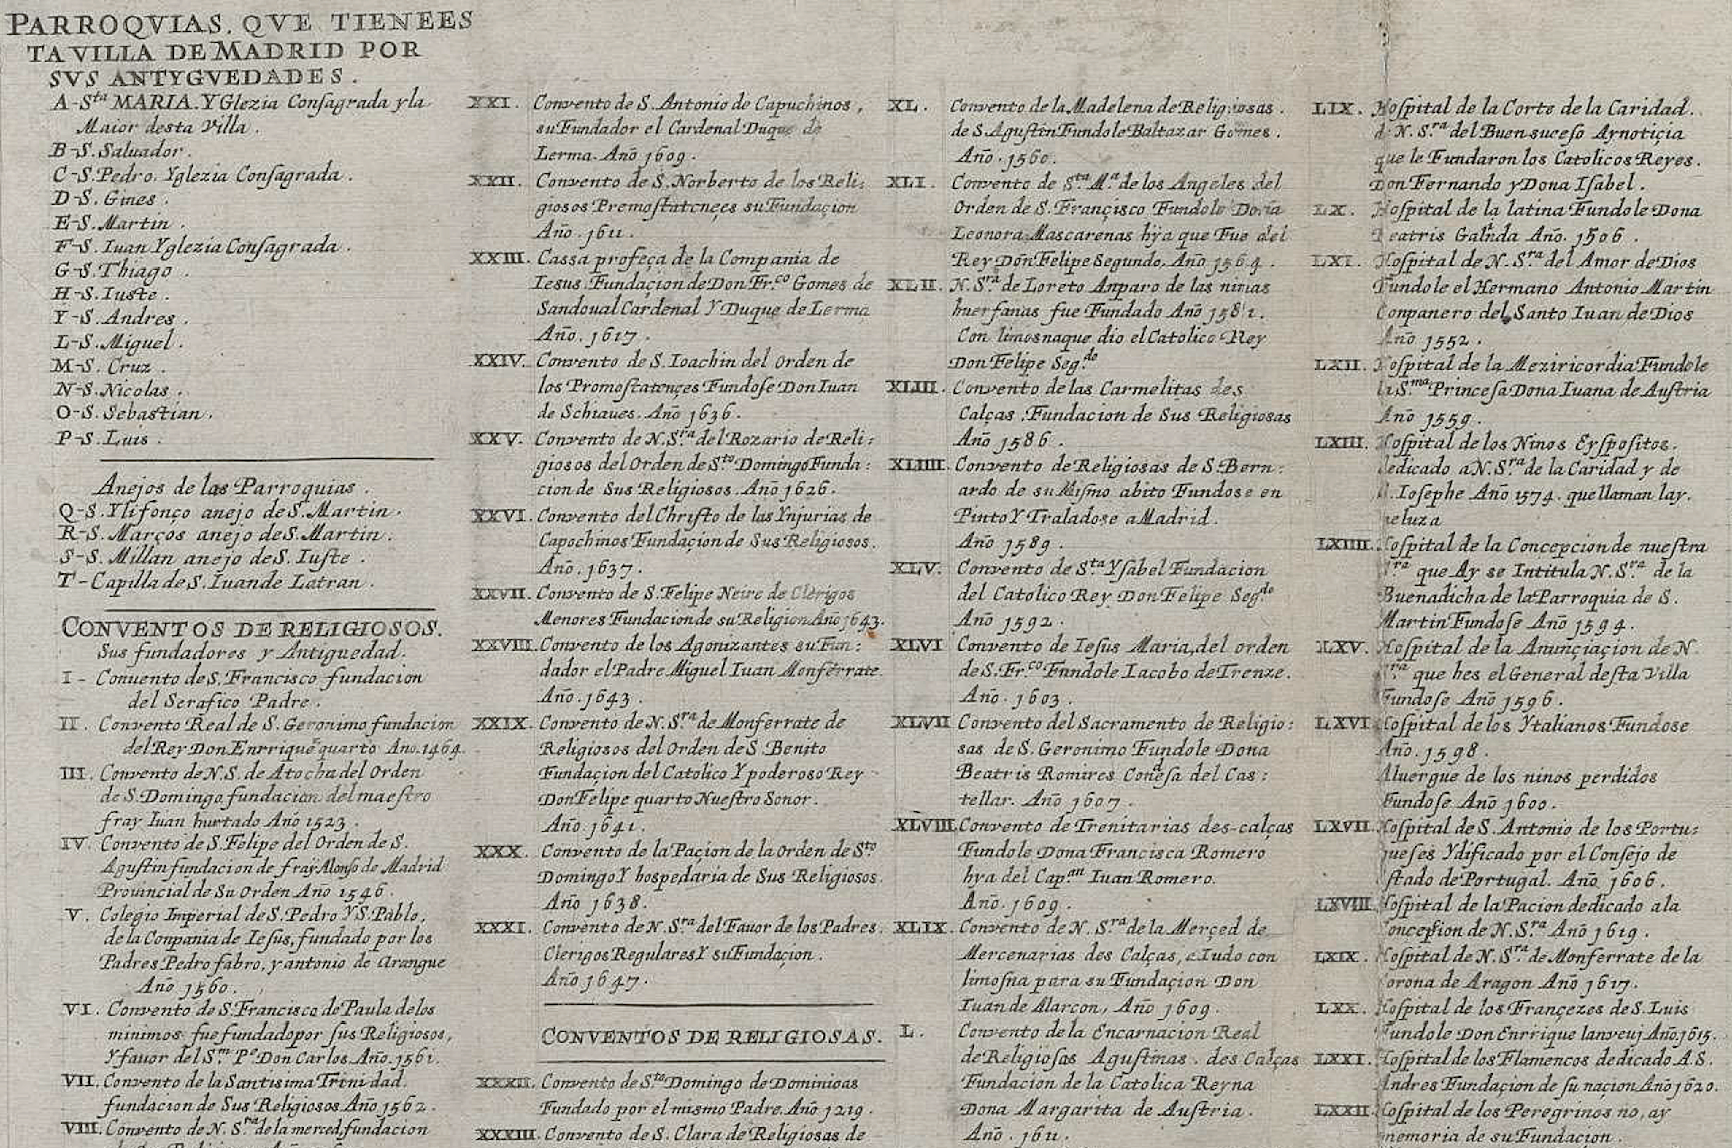 PARROQVIAS. QVE TIENEES
TA VILLA DE MADRID POR
SVS ANTYGVEDADES.
A-Sta MARIA. YGlezia Consagrada y la
Maior desta Villa.
B-S. Saluador.
C-S. Pedro. Yglezia Consagrada.
D-S. Gines.
E-S. Martin.
F-S. Iuan Yglezia Consagrada.
G-S. Thiago.
H-S. Iuste.
Y-S. Andres.
L-S. Miguel.
M-S. Cruz.
N-S. Nicolas.
O-S. Sebastian.
P-S. Luis.
Anejos de las Parroquias.
Q-S. Ylifonço anejo de S. Martin.
R-S. Marços anejo de S. Martin.
S-S. Millan anejo de S. Iuste.
T-Capilla de S. Iuan de Latran.
CONVENTOS DE RELIGIOSOS.
Sus fundadores y Antiguedad.
I- Conuento de S. Francisco fundacion
del Serafico Padre.
II. Convento Real de S. Geronimo fundacion
del Rey Don Enrrique quarto Ano. 1464.
III. Convento de N. S. de Atocha del Orden
de S. Domingo, fundacion del maestro
fray Iuan hurtado Año 1523.
IV. Convento de S. Felipe del Orden de S.
Agustin fundacion de fray Alonso de Madrid
Provincial de Su Orden Año 1546.
V. Colegio Imperial de S. Pedro Y S. Pablo,
de la Conpania de Iesus, fundado por los
Padres Pedro fabro, y antonio de Arangue
Año 1560.
VI. Convento de S. Francisco de Paula delos
minimos fue fundado por sus Religiosos,
Y fauor del Sm. Pe Don Carlos. Año. 1561.
VII. Convento de la Santisima Trinidad.
fundacion de Sus Religiosos Año 1562.
VIII. Convento de N. Sra de la merced fundacion
XXI. Convento de S. Antonio de Capuchinos,
su Fundador el Cardenal Duque de
Lerma. Año 1609.
XXII. Convento de S. Norberto de los Reli:
giosos Premostatençes su Fundaçion
Año. 1611.
XXIII. Cassa profeça de la Compania de
Iesus. Fundaçion de Don Fr.co Gomes de
Sandoual Cardenal Y Duque de Lerma
Año. 1617.
XXIV. Convento de S. Ioachin del Orden de
los Promostatençes Fundose Don Iuan
de Schiaues. Año 1636.
XXV. Convento de N. Sra del Rozario de Reli:
giosos del Orden de Sto Domingo Funda:
cion de Sus Religiosos. Año 1626.
XXVI. Convento del Christo de las Ynjurias de
Capochinos Fundaçion de Sus Religiosos.
Año. 1637.
XXVII. Convento de S. Felipe Neire de Clerigos
Menores Fundacion de su Religion Año 1643.
XXVIII. Convento de los Agonizantes su Fun:
dador el Padre Miguel Iuan Monferrate.
Año. 1643.
XXIX. Convento de N. Sra de Monferrate de
Religiosos del Orden de S. Benito
Fundaçion del Catolico Y poderoso Rey
Don Felipe quarto Nuestro Sonor.
Año. 1641.
XXX. Convento de la Paçion de la Orden de Sto
Domingo Y hospedaria de Sus Religiosos.
Año 1638.
XXXI. Convento de N. Sra del Fauor de los Padres.
Clerigos Regulares Y su Fundaçion.
Año 1647.
CONVENTOS DE RELIGIOSAS.
XXXII. Convento de Sto Domingo de Dominicas
Fundado por el mismo Padre. Año 1219.
XXXIII. Convento de S. Clara de Religiosas de
XL. Convento de la Madelena de Religiosas.
de S. Agustin Fundole Baltazar Gomes.
Año. 1560.
XLI. Convento de Sta Ma. de los Angeles del
Orden de S. Françisco Fundole Doña
Leonora Mascarenas hija que Fue del
Rey Don Felipe Segundo, Año 1564.
XLII. N. Sra de Loreto Anparo de las ninias
huerfanas fue Fundado Año 1581.
Con limosna que dio el Catolico Rey
Don Felipe Seg.do
XLIII. Convento de las Carmelitas des
Calças. Fundacion de Sus Religiosas
Año 1586.
XLIIII. Convento de Religiosas de S. Bern:
ardo de su Mismo abito Fundose en
Pinto Y Traladose a Madrid.
Año 1589.
XLV. Convento de Sta Ysabel Fundacion
del Catolico Rey Don Felipe Segdo
Año 1592.
XLVI Convento de Iesus Maria, del orden
de S. Fr.co Fundole Iacobo de Trenze.
Año. 1603.
XLVII Convento del Sacramento de Religio:
sas de S. Geronimo Fundole Dona
Beatris Romires Condesa del Cas:
tellar. Año 1607.
XLVIII. Convento de Trenitarias des-calças
Fundole Dona Francisca Romero
hya del Cap.an Iuan Romero.
Año. 1609.
XLIX. Convento de N. Sra de la Merçed de
Mercenarias des Calças, aIudo con
limosna para su Fundaçion Don
Iuan de Alarcon, Año 1609.
L. Convento de la Encarnacion Real
de Religiosas Agustinas. des Calças
Fundacion de la Catolica Reyna
Dona Margarita de Austria.
Año. 1611.
LIX. Hospital de la Corte de la Caridad.
d N. Sra del Buen suceso Ay notiçia
que le Fundaron los Catolicos Reyes.
Don Fernando y Dona Isabel.
LX. Hospital de la latina Fundole Dona
Beatris Galinda Año. 1506.
LXI. Hospital de N. Sra del Amor de Dios
Fundole el Hermano Antonio Martin
Conpanero del Santo Iuan de Dios
Año 1552.
LXII. Hospital de la Meziricordia Fundole
la Sma Princesa Dona Iuana de Austria
Año 1559.
LXIII. Hospital de los Ninos Eyspositos.
dedicado a N. Sra de la Caridad y de
S. Iosephe Año 1574. que llaman lay.
neluza
LXIIII. Hospital de la Concepcion de nuestra
Sra que Ay se Intitula N. Sra de la
Buenadicha de la Parroquia de S.
Martin Fundose Año 1594.
LXV. Hospital de la Anunçiaçion de N.
Sra que hes el General desta Villa
Fundose Año 1596.
LXVI. Hospital de los Ytalianos Fundose
Año. 1598.
Aluergue de los ninos perdidos
Fundose Año 1600.
LXVII. Hospital de S. Antonio de los Portu:
gueses Ydificado por el Consejo de
stado de Portugal. Año 1606.
LXVIII. Hospital de la Pacion dedicado ala
Concepsion de N. Sra Año 1619.
LXIX. Hospital de N. Sra de Monferrate de la
Corona de Aragon Año 1617.
LXX. Hospital de los Françezes de S. Luis
Fundole Don Enrrique Ianveuj Año. 1615.
LXXI. Hospital de los Flamencos dedicado A. S.
Andres Fundaçion de su naçion Año 1620.
LXXII. Hospital de los Peregrinos no, ay
memoria de su Fundacion.